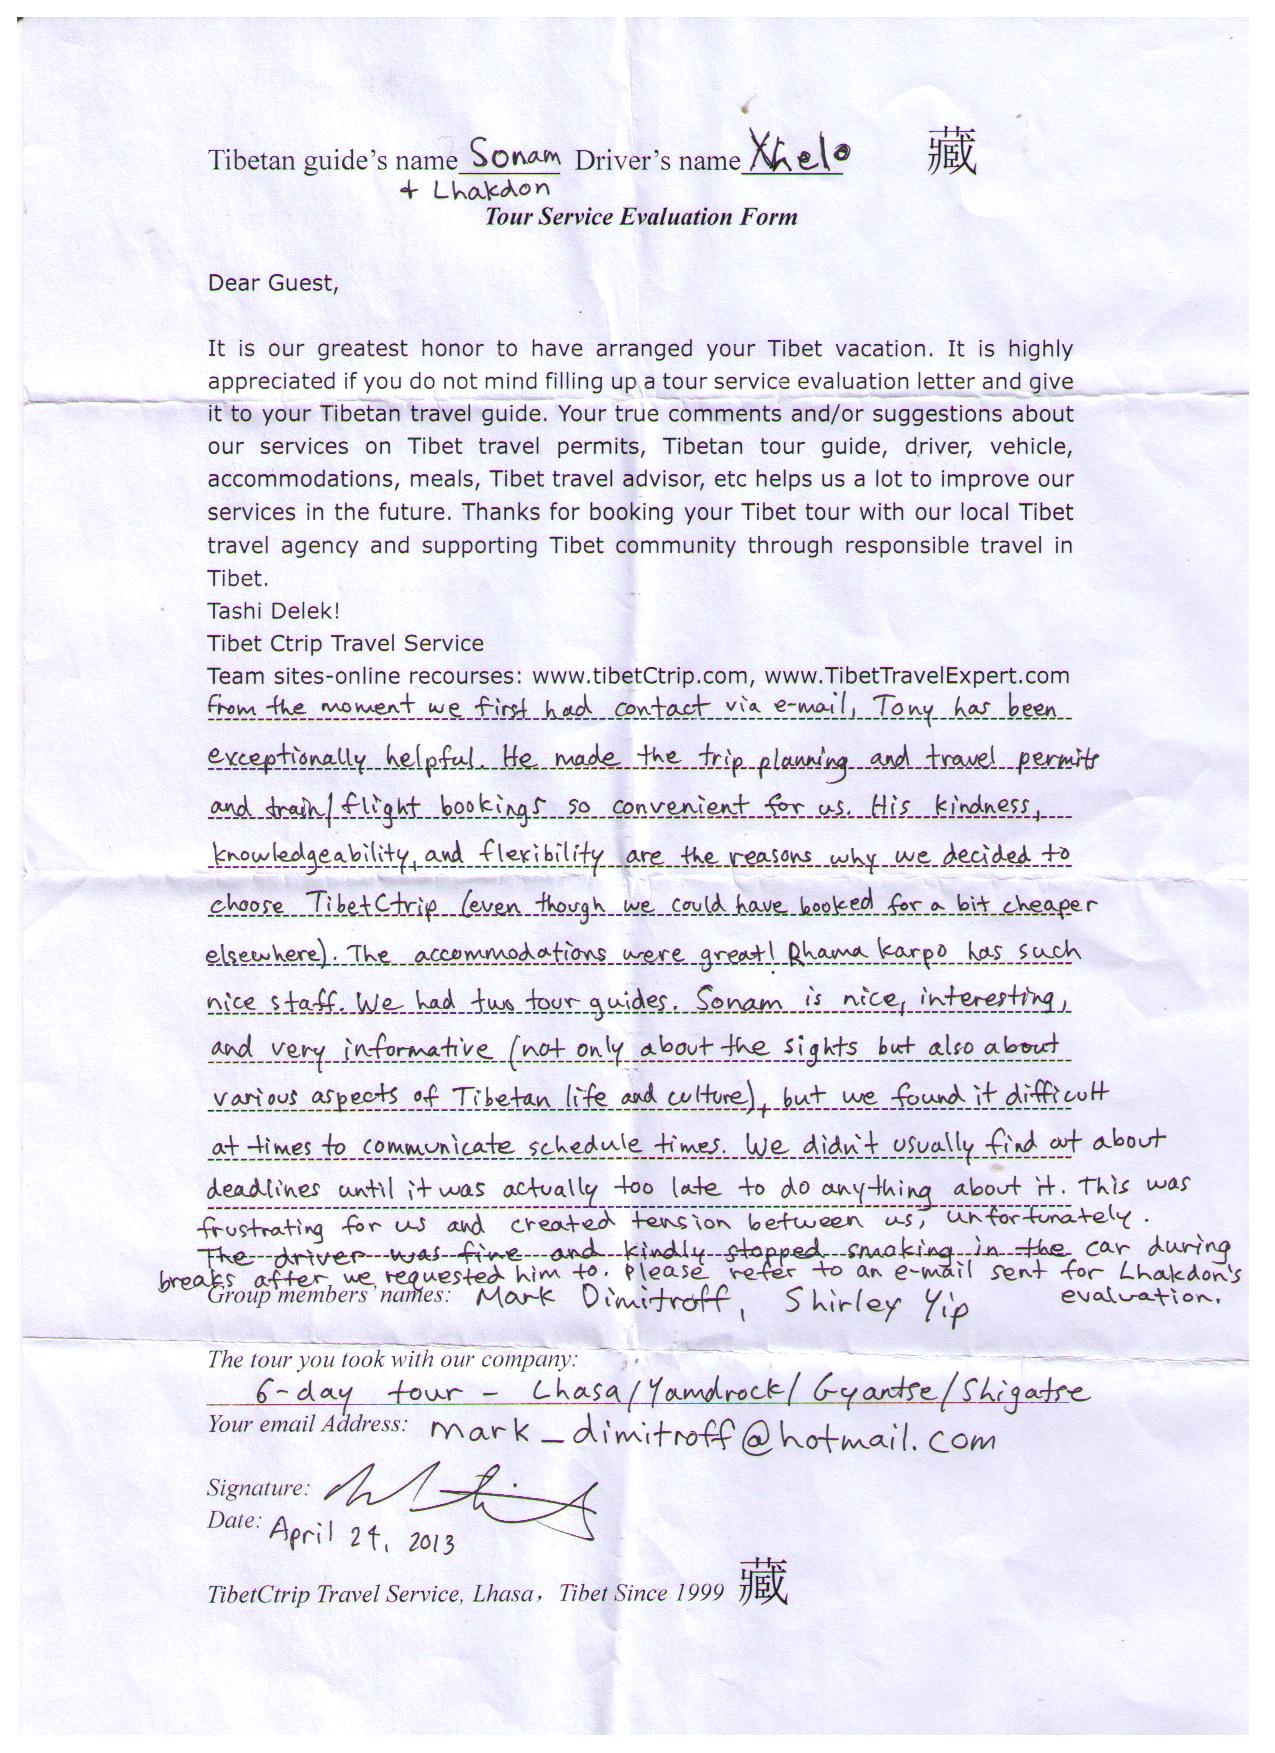 Tibetan guide's name Sonam Driver's name Xhelo 藏
+ Lhakdon
Tour Service Evaluation Form
Dear Guest,
It is our greatest honor to have arranged your Tibet vacation. It is highly
appreciated if you do not mind filling up a tour service evaluation letter and give
it to your Tibetan travel guide. Your true comments and/or suggestions about
our services on Tibet travel permits, Tibetan tour guide, driver, vehicle,
accommodations, meals, Tibet travel advisor, etc helps us a lot to improve our
services in the future. Thanks for booking your Tibet tour with our local Tibet
travel agency and supporting Tibet community through responsible travel in
Tibet.
Tashi Delek!
Tibet Ctrip Travel Service
Team sites-online recourses: www.tibetCtrip.com, www.TibetTravelExpert.com
From the moment we first had contact via e-mail, Tony has been
exceptionally helpful. He made the trip planning and travel permits
and train/flight bookings so convenient for us. His kindness,
knowledgeability, and flexibility are the reasons why we decided to
choose TibetCtrip (even though we could have booked for a bit cheaper
elsewhere). The accommodations were great! Rhama Karpo has such
nice staff. We had two tour guides. Sonam is nice, interesting,
and very informative (not only about the sights but also about
various aspects of Tibetan life and culture), but we found it difficult
at times to communicate schedule times. We didn't usually find out about
deadlines until it was actually too late to do anything about it. This was
frustrating for us and created tension between us, unfortunately.
The driver was fine and kindly stopped smoking in the car during
breaks after we requested him to. Please refer to an e-mail sent for Lhakdon's
evaluation.
Group members' names: Mark Dimitroff, Shirley Yip
The tour you took with our company:
6-day tour - Lhasa/Yamdrock/Gyantse/Shigatse
Your email Address: mark_dimitroff@hotmail.com
Signature:
Date: April 24, 2013
TibetCtrip Travel Service, Lhasa, Tibet Since 1999 藏